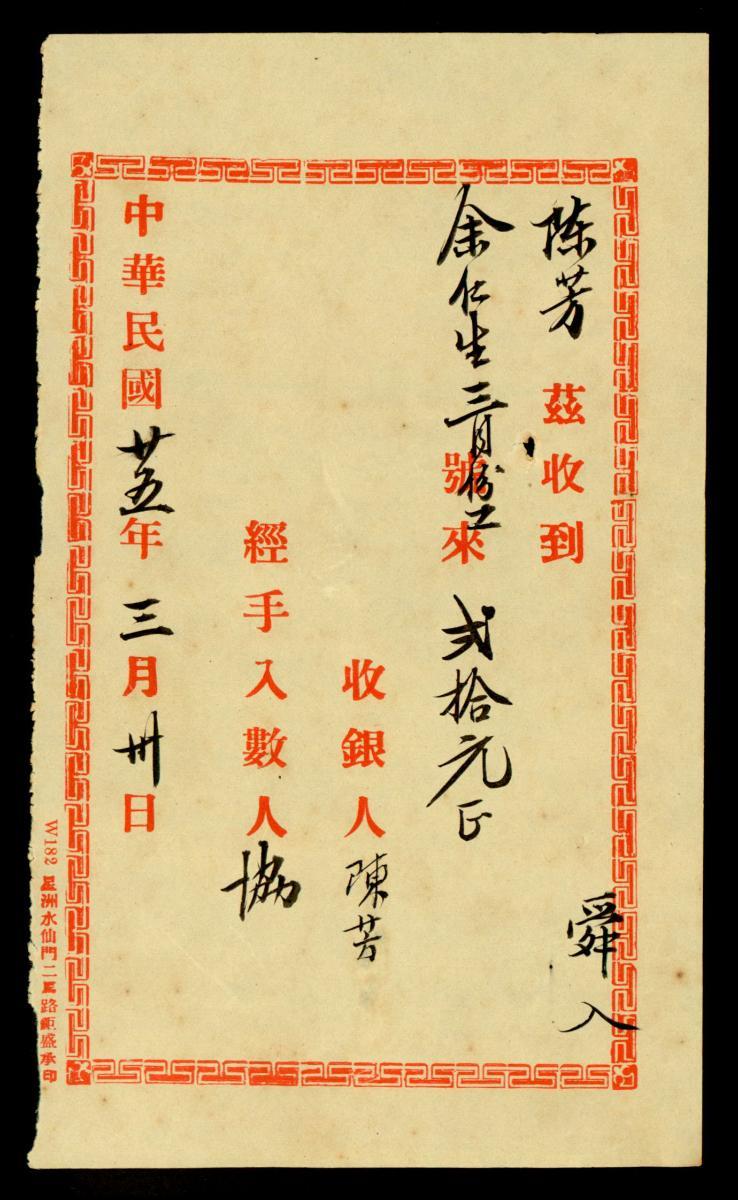 陈芳 茲收到
余仁生三月份工號來 弍拾元正
舜入
收銀人 陳芳
經手入數人 協
中華民國廿五年三月卅日
W182 星洲水仙門二馬路鉅盛承印